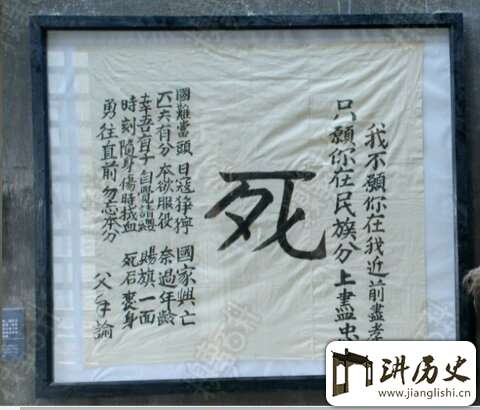 我不願你在我近前盡孝
只願你在民族分上盡忠
死
國難當頭 日寇猙獰 國家興亡
匹夫有分 本欲服役 奈過年齡
幸吾有子 自覺請纓 賜旗一面
時刻隨身 傷時拭血 死后裹身
勇往直前 勿忘本分
父手諭
讲历史
www.jianglishi.cn